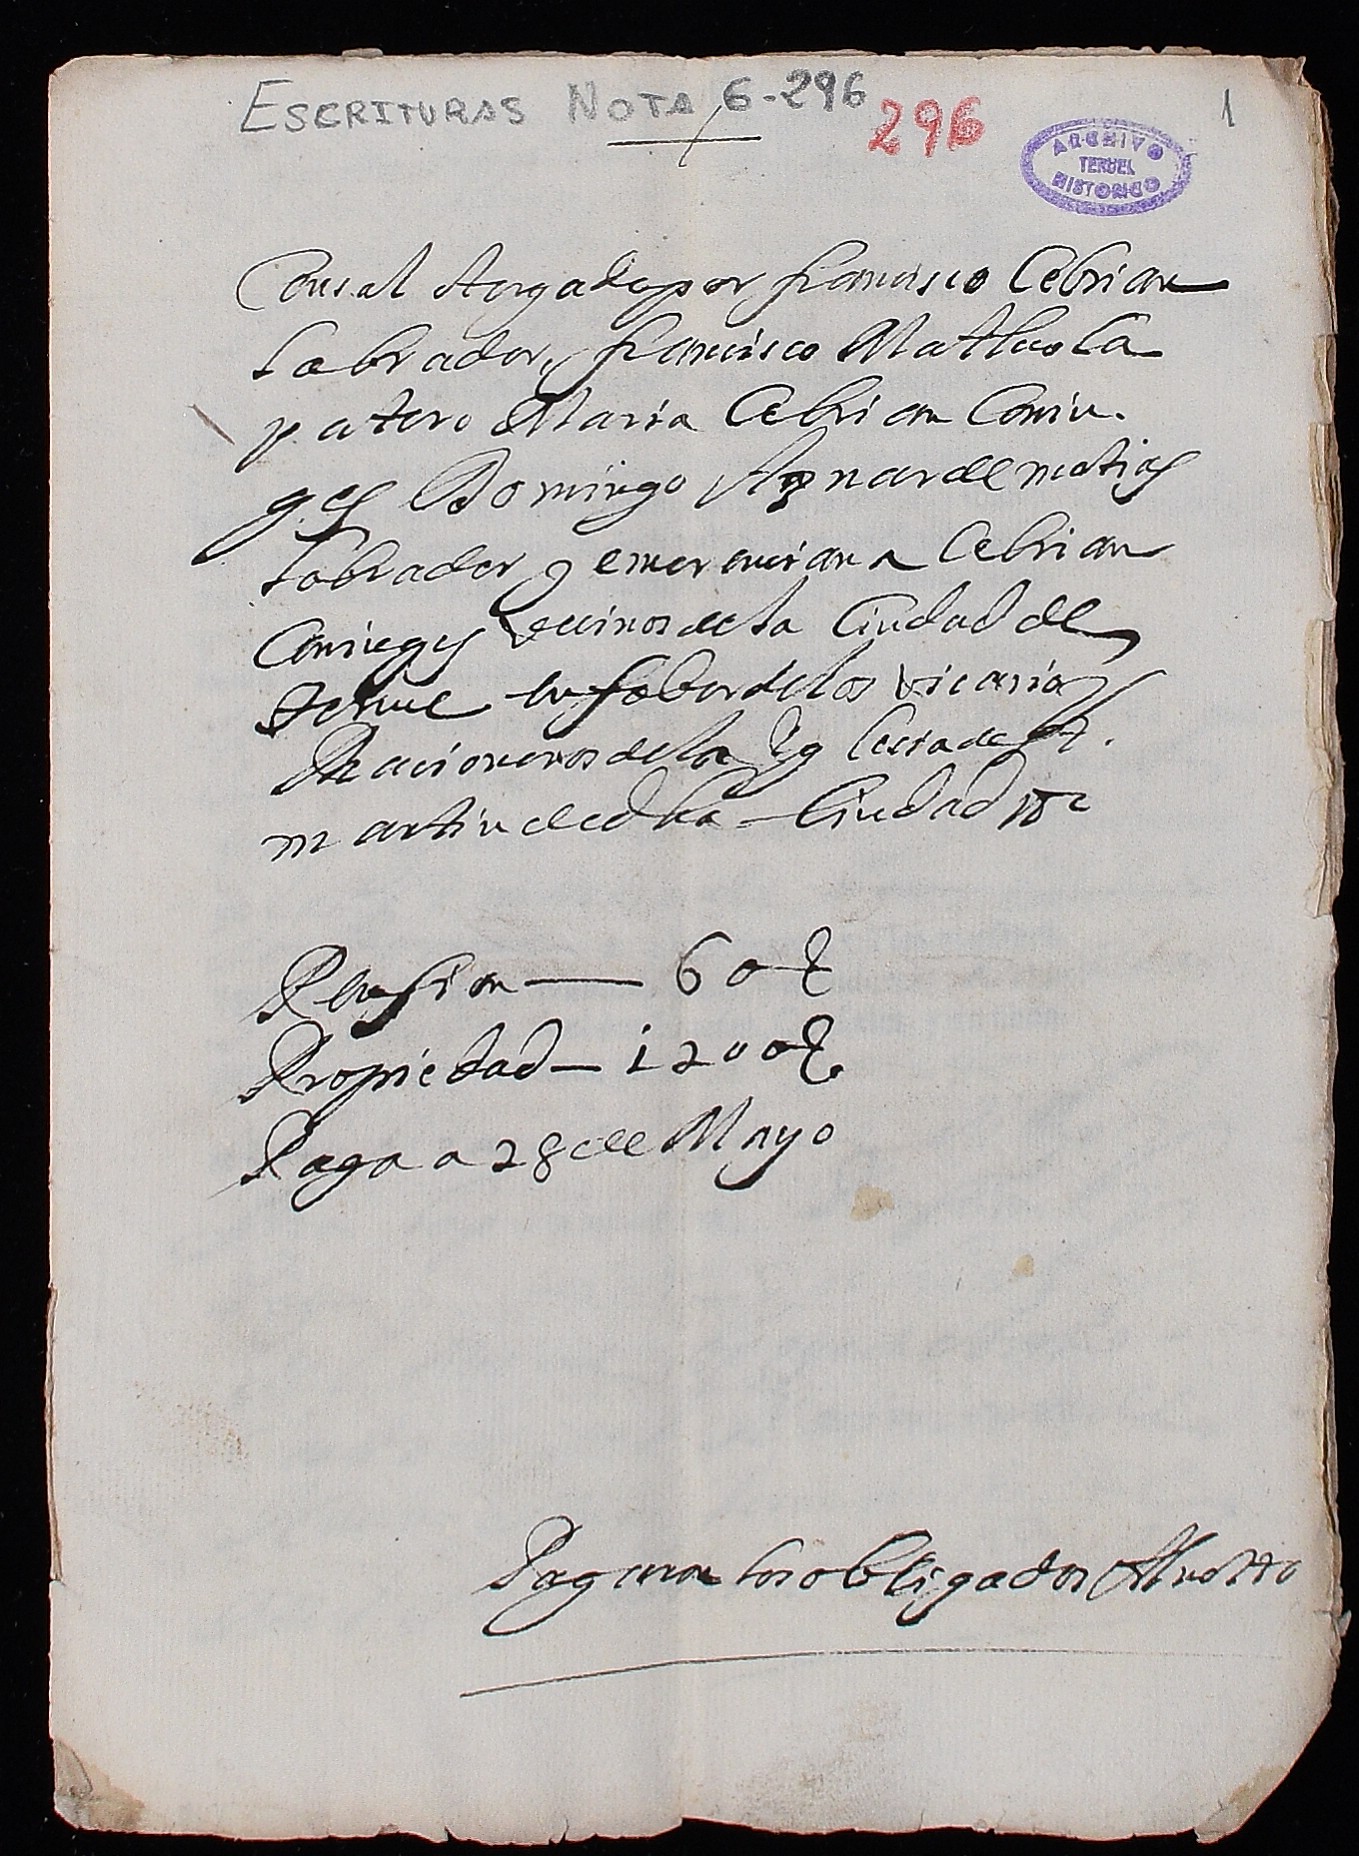 ESCRITURAS NOTA 6-296
296
1
ARCHIVO
TERUEL
HISTORICO
Censal Atorgado por francisco Cebrian
Labrador, francisco Matheo Ca
patero Maria Cebrian Coniu.
ges Domingo Aznar de matias
Labrador y emerenciana Cebrian
Coniuges vecinos de la Ciudad de
Teruel en fabor de los vicario y
Racioneros de la Yglecia de St.
martin de dha Ciudad
Pension — 60 S
Propiedad — 1200 S
Paga a 28 de Mayo
Pagaron los obligados